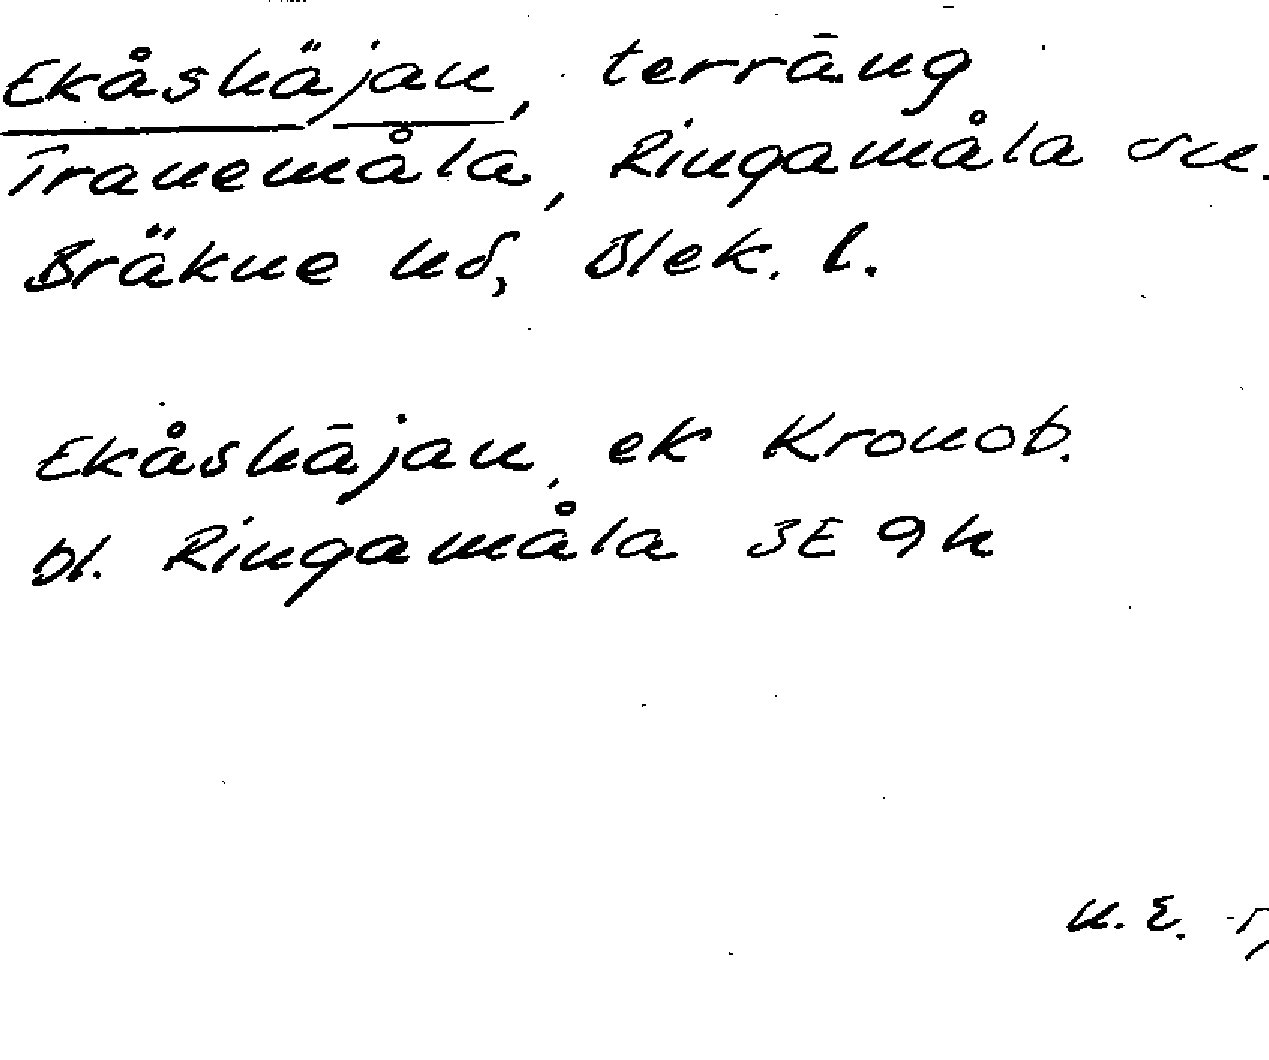 Ekåshäjan, terräng
Tranemåla, Ringamåla sn.
Bräkne hd, Blek. l.
Ekåshäjan, ek Kronob.
bl. Ringamåla 3E 9h